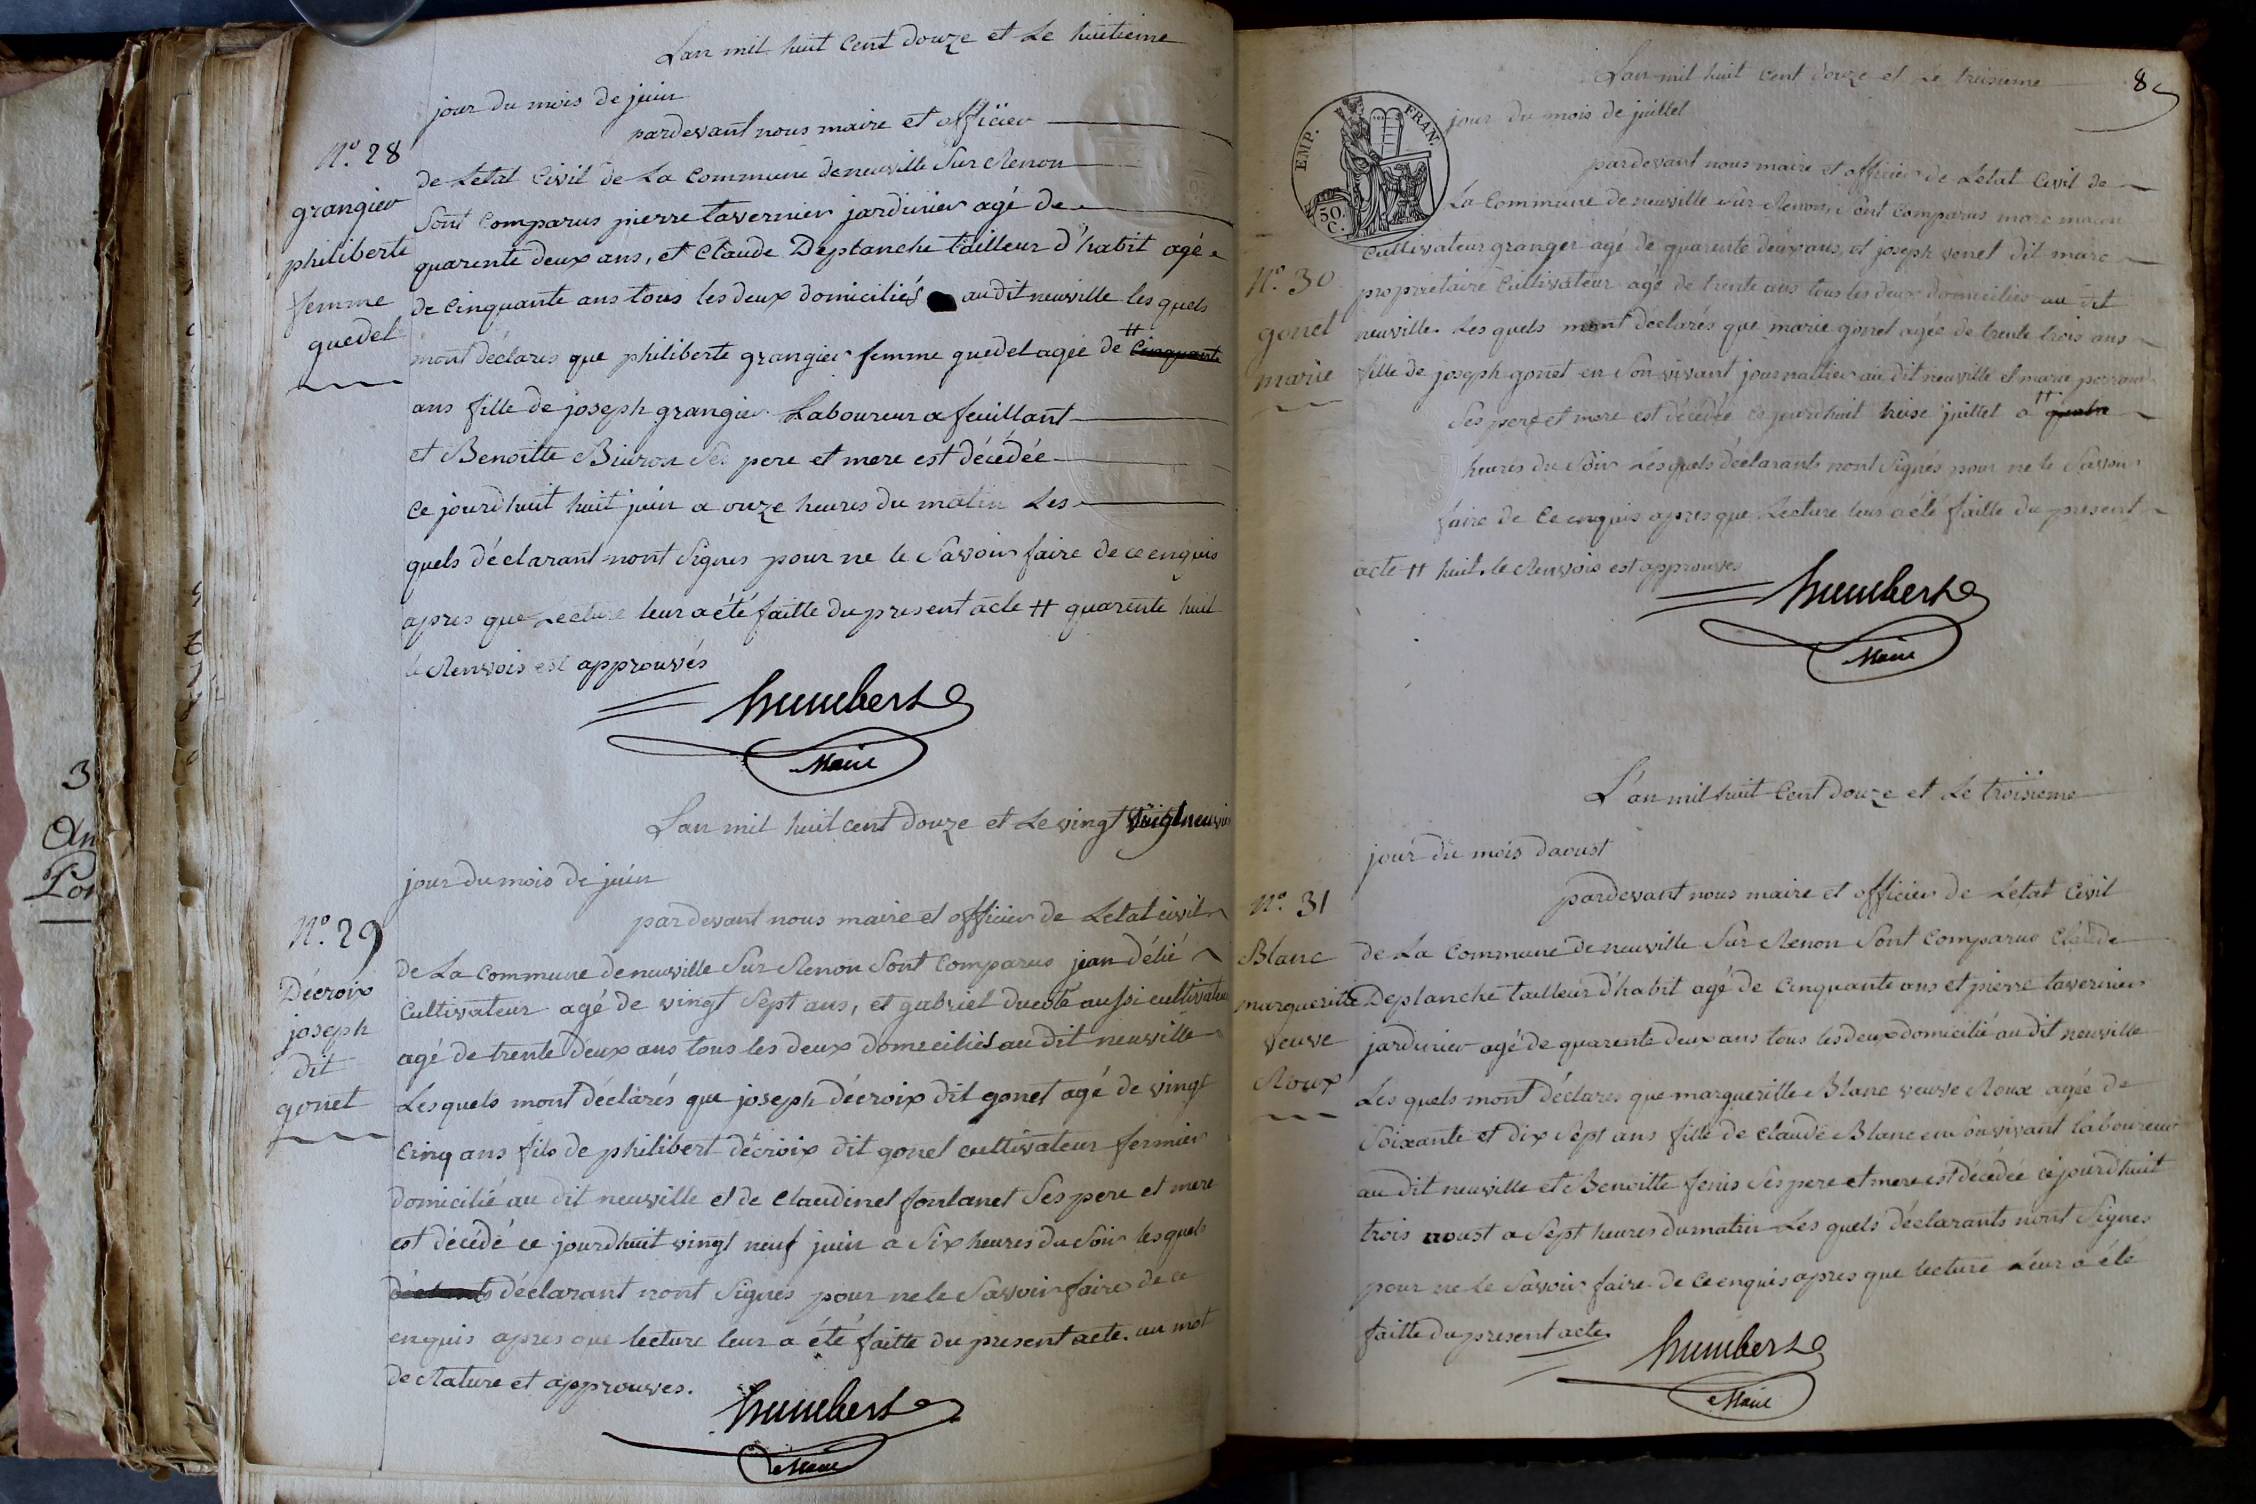 Lan mil huit Cent douze et Le huitieme
jour du mois de juin
pardevant nous maire et officier
N.o 28
de Letat Civil de La Commune de neuville Sur Renon
grangier
Sont Comparus pierre tavernier jardinier agé de
philiberte
quarente deux ans, et Claude Deplanche tailleur d'habit agé
femme
de Cinquante ans tous les deux domiciliés au dit neuville les quels
guedel
mont déclarés que philiberte grangier femme guedel agée de # Cinquante
ans fille de joseph grangier Laboureur a feuillant
et Benoitte Ses pere et mere est décédée
Ce jourd'huit huit juin a onze heures du matin Les
quels déclarant nont Signes pour ne le Savoir faire de ce enquis
apres que Lecture leur a été faitte du present acte # quarente huit
le Renvois est approuvés
humbert
Maire
Lan mil huit cent douze et Le vingt
jour du mois de juin
pardevant nous maire et officier de Letat civil
N.o 29
de La Commune de neuville Sur Renon Sont Comparus jean délié
Décroix
Cultivateur agé de vingt Sept ans, et gabriel aussi cultivateur
joseph
agé de trente deux ans tous les deux domeciliés au dit neuville
dit
gonet
Lesquels mont déclarés que joseph décroix dit gonet agé de vingt
Cinq ans fils de philibert décroix dit gonet cultivateur fermier
domicilié au dit neuville et de Claudinet fontanet Ses pere et mere
est décédé ce jourdhuit vingt neuf juin a Six heures du Soir lesquels
déclarant nont Signes pour ne le Savoir faire de ce
enquis apres que lecture leur a été faitte du present acte. un mot
de Rature et approuves.
humbert
Maire
8
Lan mil huit cent douze et Le treisieme
jour du mois de juillet
EMP. FRAN.
50. C.
pardevant nous maire et officier de Letat Civil de
La Commune de neuville Sur Renon, Sont Comparus marc
Cultivateur granger agé de quarente deux ans, et joseph venet dit marc
N.o 30
propriétaire Cultivateur agé de trente ans tous les deux domiciliés au dit
gonet
neuville. Les quels mont déclarés que marie gonet agée de trente trois ans
marie
fille de joseph gonet en Son vivant journallier au dit neuville et marie
Ses pere et mere est décédée ce jourdhuit treise juillet a #
heures du Soir Lesquels déclarants nont Signés pour ne le Savoir
faire de Ce enquis apres que Lecture leur a été faitte du present
acte # huit. le Renvois est approuves
humbert
Maire
L'an mil huit Cent douze et Le troisieme
jour du mois daoust
pardevant nous maire et officier de Letat Civil
N.o 31
Blanc
de La Commune de neuville Sur Renon Sont Comparus Claude
margueritte
Deplanche tailleur d'habit agé de Cinquante ans et pierre tavernier
veuve
jardinier agé de quarente deux ans tous les deux domicilié au dit neuville
Roux
Les quels mont déclares que margueritte Blanc veuve Roux agée de
Soixante et dix Sept ans fille de Claude Blanc en Son vivant laboureur
au dit neuville et Benoitte fenis Ses pere et mere est décédée ce jourdhuit
trois aoust a Sept heures du matin Les quels déclarants nont Signes
pour ne le Savoir faire de ce enquis apres que lecture Leur a été
faitte du present acte.
humbert
Maire